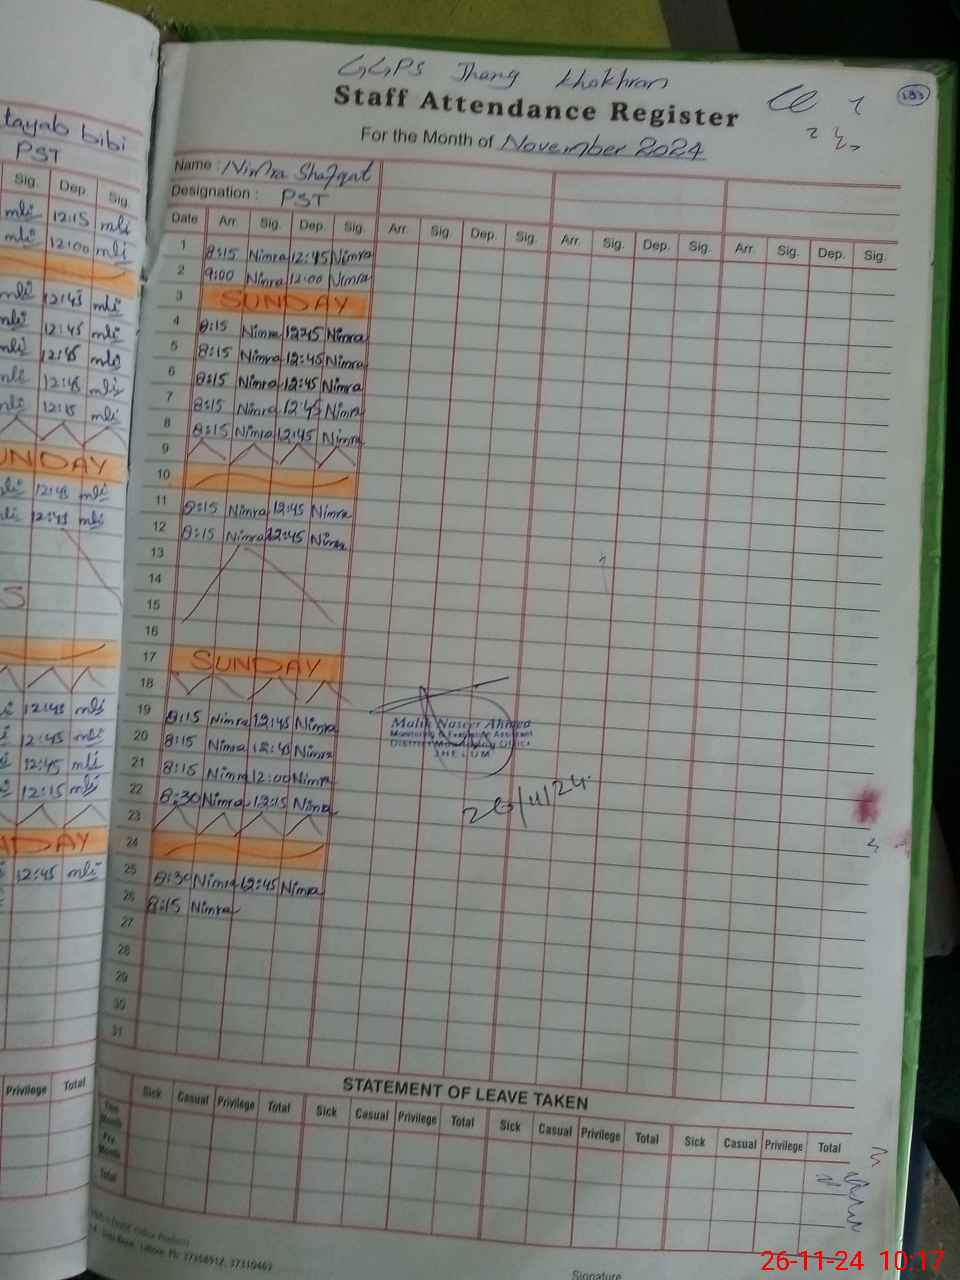 GGPS Jhang Khokhran
Staff Attendance Register
133
For the Month of November 2024
tayab bibi
PST
Sig. Dep. Sig.
mli 12:15 mli
mli 12:00 mli
mli 12:45 mli
mli 12:45 mli
mli 12:45 mli
mli 12:45 mli
mli 12:15 mli
SUNDAY
mli 12:45 mli
mli 12:45 mli
S
12:45 mli
12:45 mli
12:45 mli
12:15 mli
12:45 mli
Privilege Total
Name : Nimra Shafqat
Designation : PST
Date Arr. Sig. Dep. Sig. Arr. Sig. Dep. Sig. Arr. Sig. Dep. Sig. Arr. Sig. Dep. Sig.
1 8:15 Nimra 12:45 Nimra
2 9:00 Nimra 12:00 Nimra
3 SUNDAY
4 8:15 Nimra 12:45 Nimra
5 8:15 Nimra 12:45 Nimra
6 8:15 Nimra 12:45 Nimra
7 8:15 Nimra 12:45 Nimra
8 8:15 Nimra 12:45 Nimra
9
10
11 8:15 Nimra 12:45 Nimra
12 8:15 Nimra 12:45 Nimra
13
14
15
16
17 SUNDAY
18
19 8:15 Nimra 12:45 Nimra
20 8:15 Nimra 12:45 Nimra
21 8:15 Nimra 12:00 Nimra
22 8:30 Nimra 12:15 Nimra
23
24
25 8:30 Nimra 12:45 Nimra
26 8:15 Nimra
27
28
29
30
31
Malik Naseer Ahmed
Monitoring & Evaluation Assistant
District Monitoring Office
JHELUM
26/11/24
STATEMENT OF LEAVE TAKEN
Sick Casual Privilege Total Sick Casual Privilege Total Sick Casual Privilege Total Sick Casual Privilege Total
This Month
Pre Month
Total
Signature
26-11-24 10:17